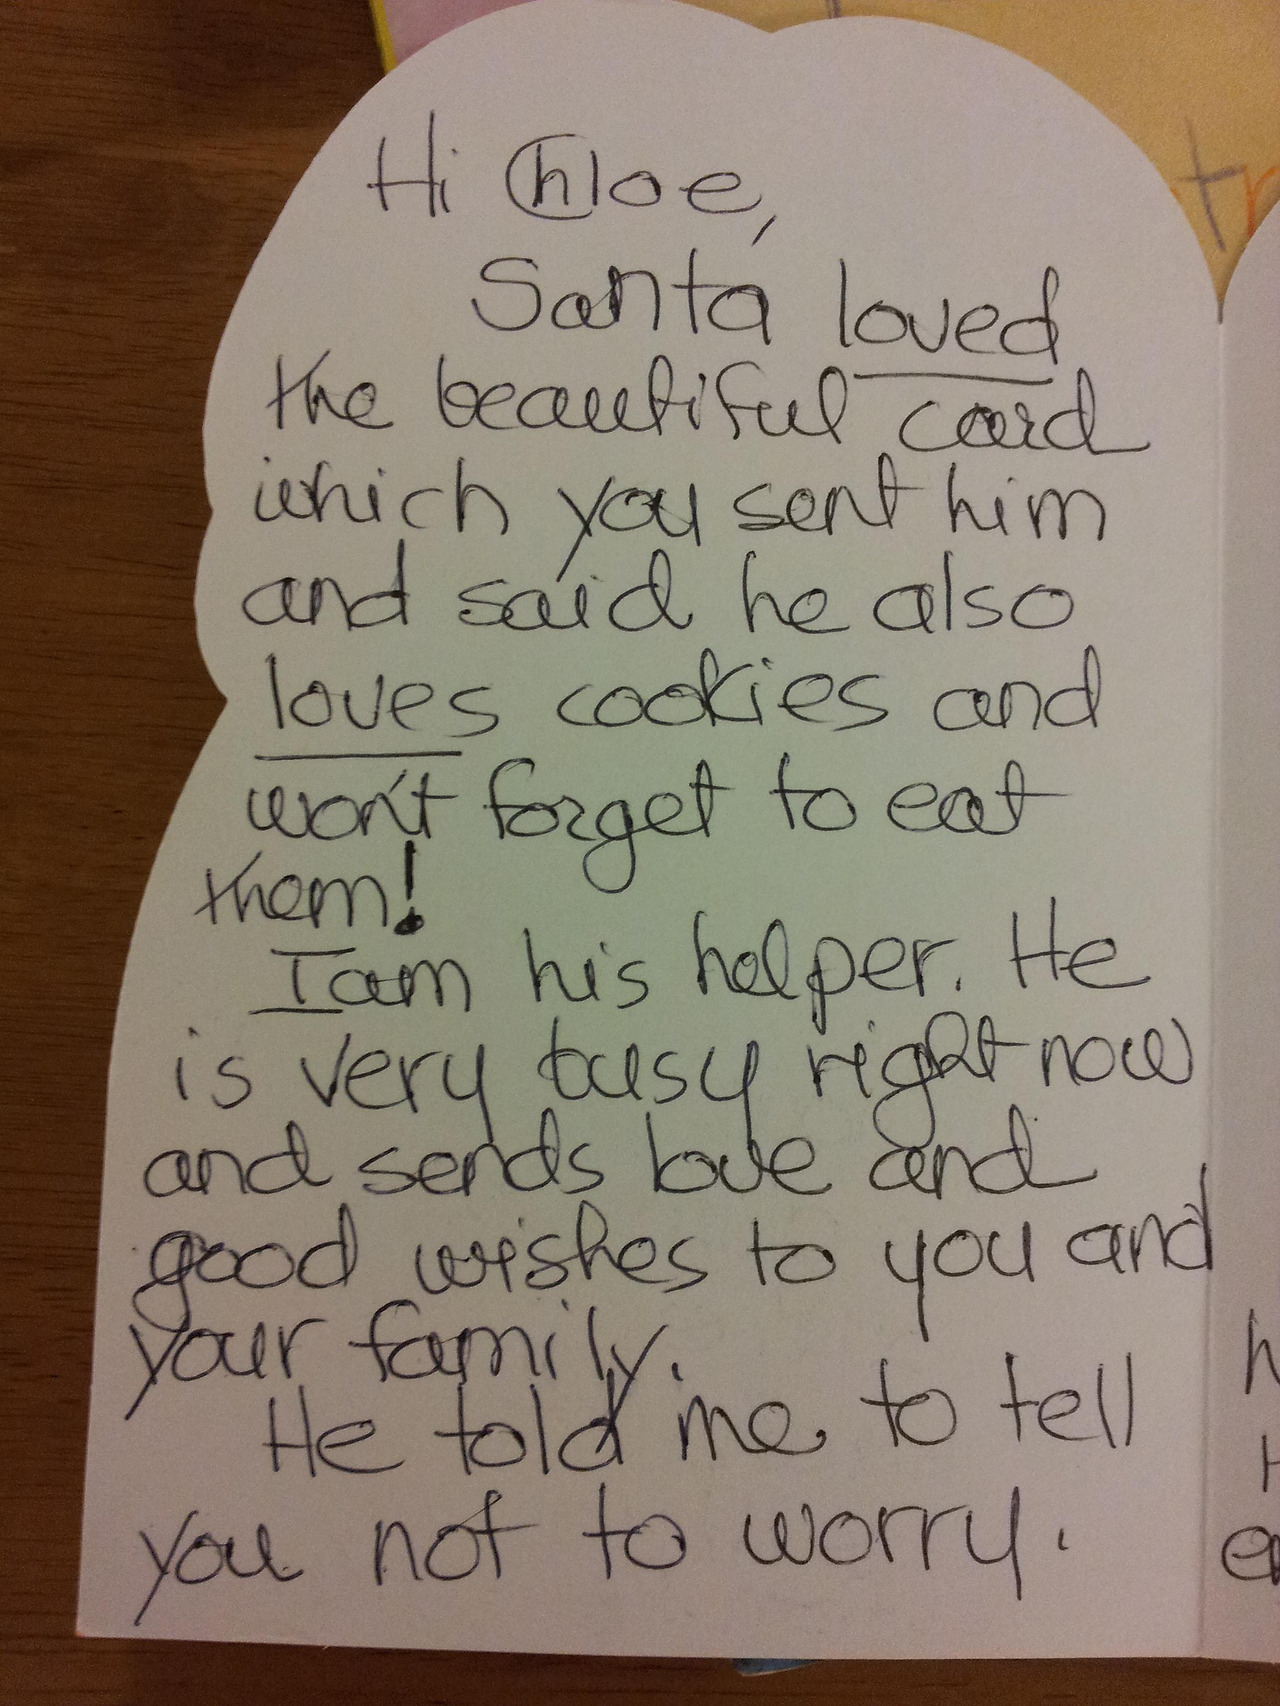 Hi Chloe,
Santa loved
the beautiful card
which you sent him
and said he also
loves cookies and
won't forget to eat
them!
I am his helper. He
is very busy right now
and sends love and
good wishes to you and
your family.
He told me to tell
you not to worry.